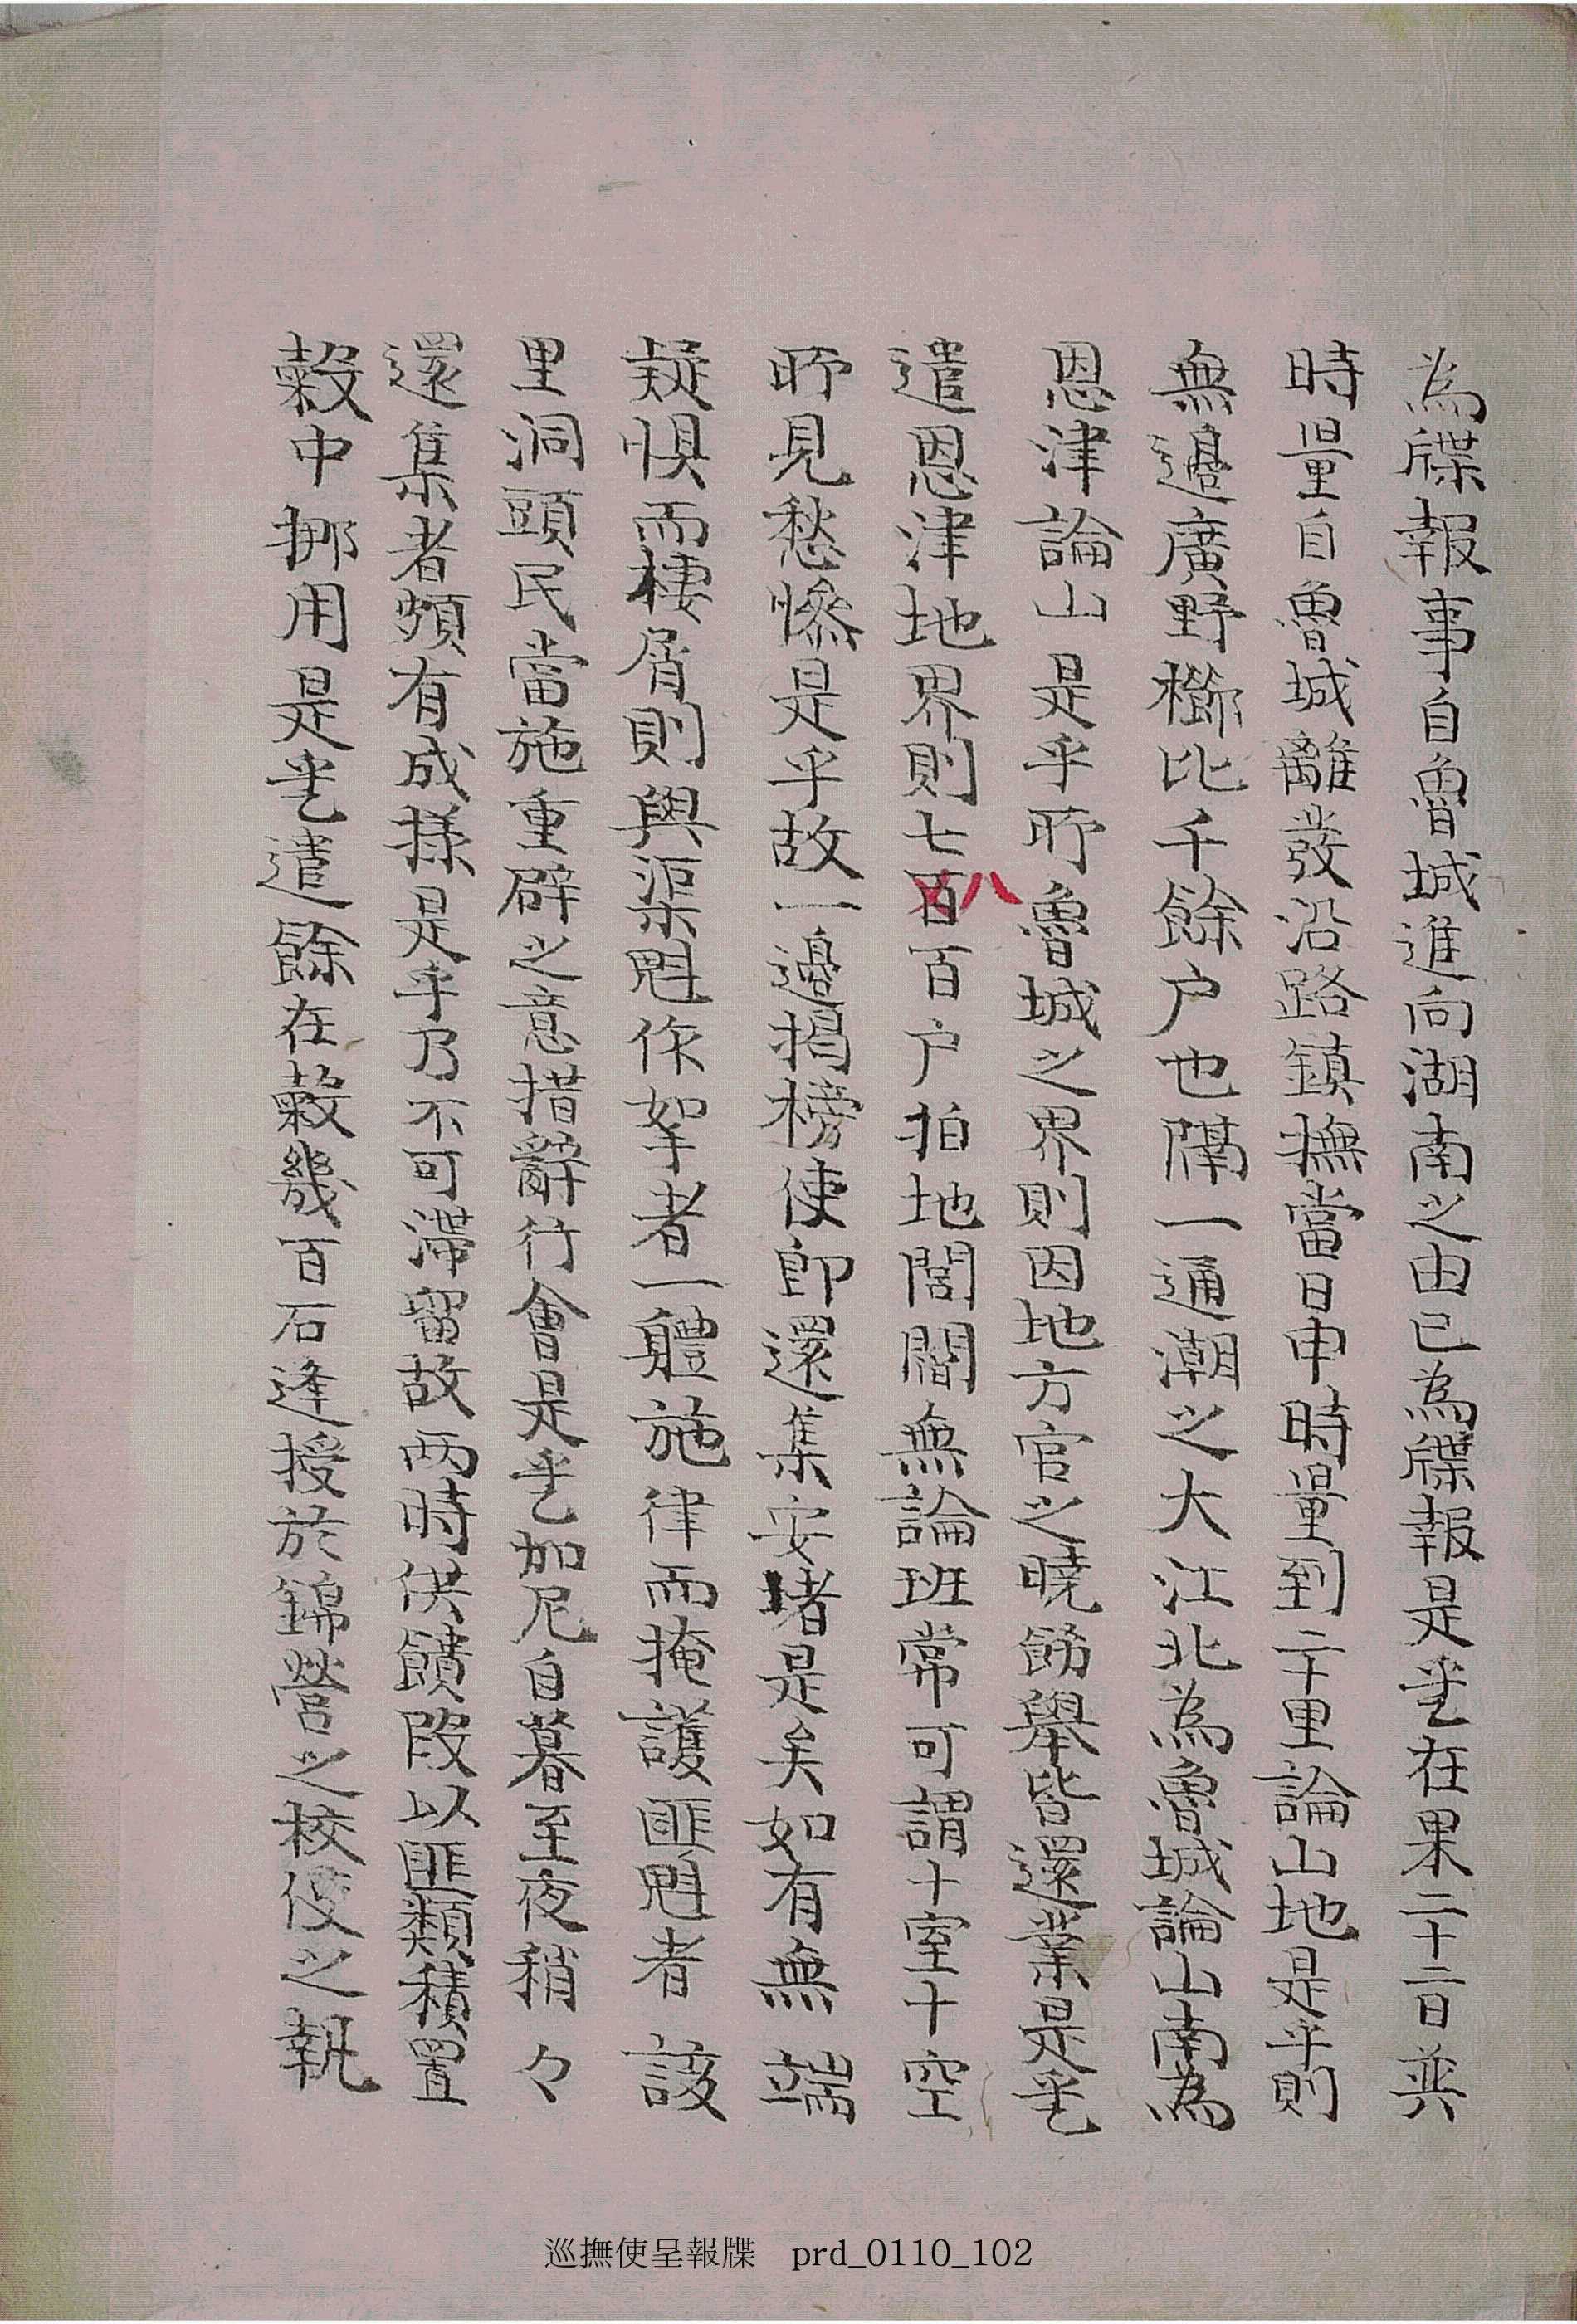 為牒報事自魯城進向湖南之由已為牒報是乎乙在果二十二日卯
時量自魯城離發沿路鎭撫當日申時量到二十里論山地是乎則
無邊廣野櫛比千餘户也隔一通潮之大江北為魯城論山南為
恩津論山是乎所魯城之界則因地方官之曉飭擧皆還業是乎乙
遣恩津地界則七八百户拍地閭閻無論班常可謂十室十空
所見愁慘是乎故一邊揭榜使卽還集安堵是矣如有無端
疑惧而棲屑則與渠魁作挐者一軆施律而掩護匪魁者該
里洞頭民當施重辟之意措辭行會是乎乙加尼自暮至夜稍々
還集者頗有成㨾是乎乃不可滯留故兩時供饋段以匪類積置
穀中挪用是乎遣餘在穀幾百石逢授於錦營之校使之執
巡撫使呈報牒 prd_0110_102